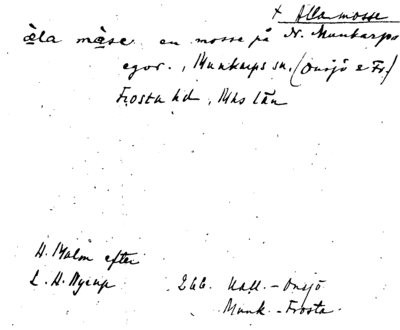 × Alla mosse
àla màse en mosse på N. Munkarps
egor., Munkarps sn. (Onsjö o Fr.)
Frosta hd, Mhs län
H. Malm efter
L. H. Nyrup
266. Hall. - Onsjö
Munk. - Frosta.